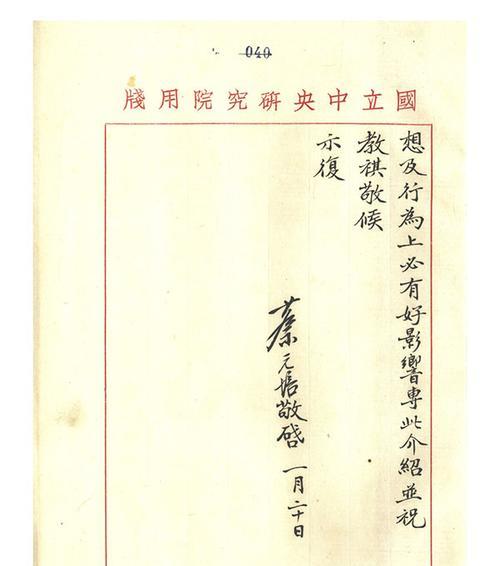 040
國立中央研究院用牋
想及行為上必有好影響專此介紹並祝
教祺敬候
示復
蔡元培敬啓 一月二十日